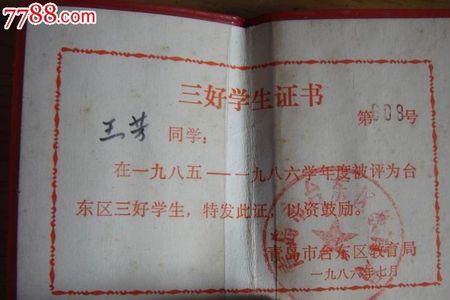 7788.com
三好学生证书
第008号
王芳 同学：
在一九八五—一九八六学年度被评为台
东区三好学生，特发此证，以资鼓励。
青岛市台东区教育局
一九八六年七月